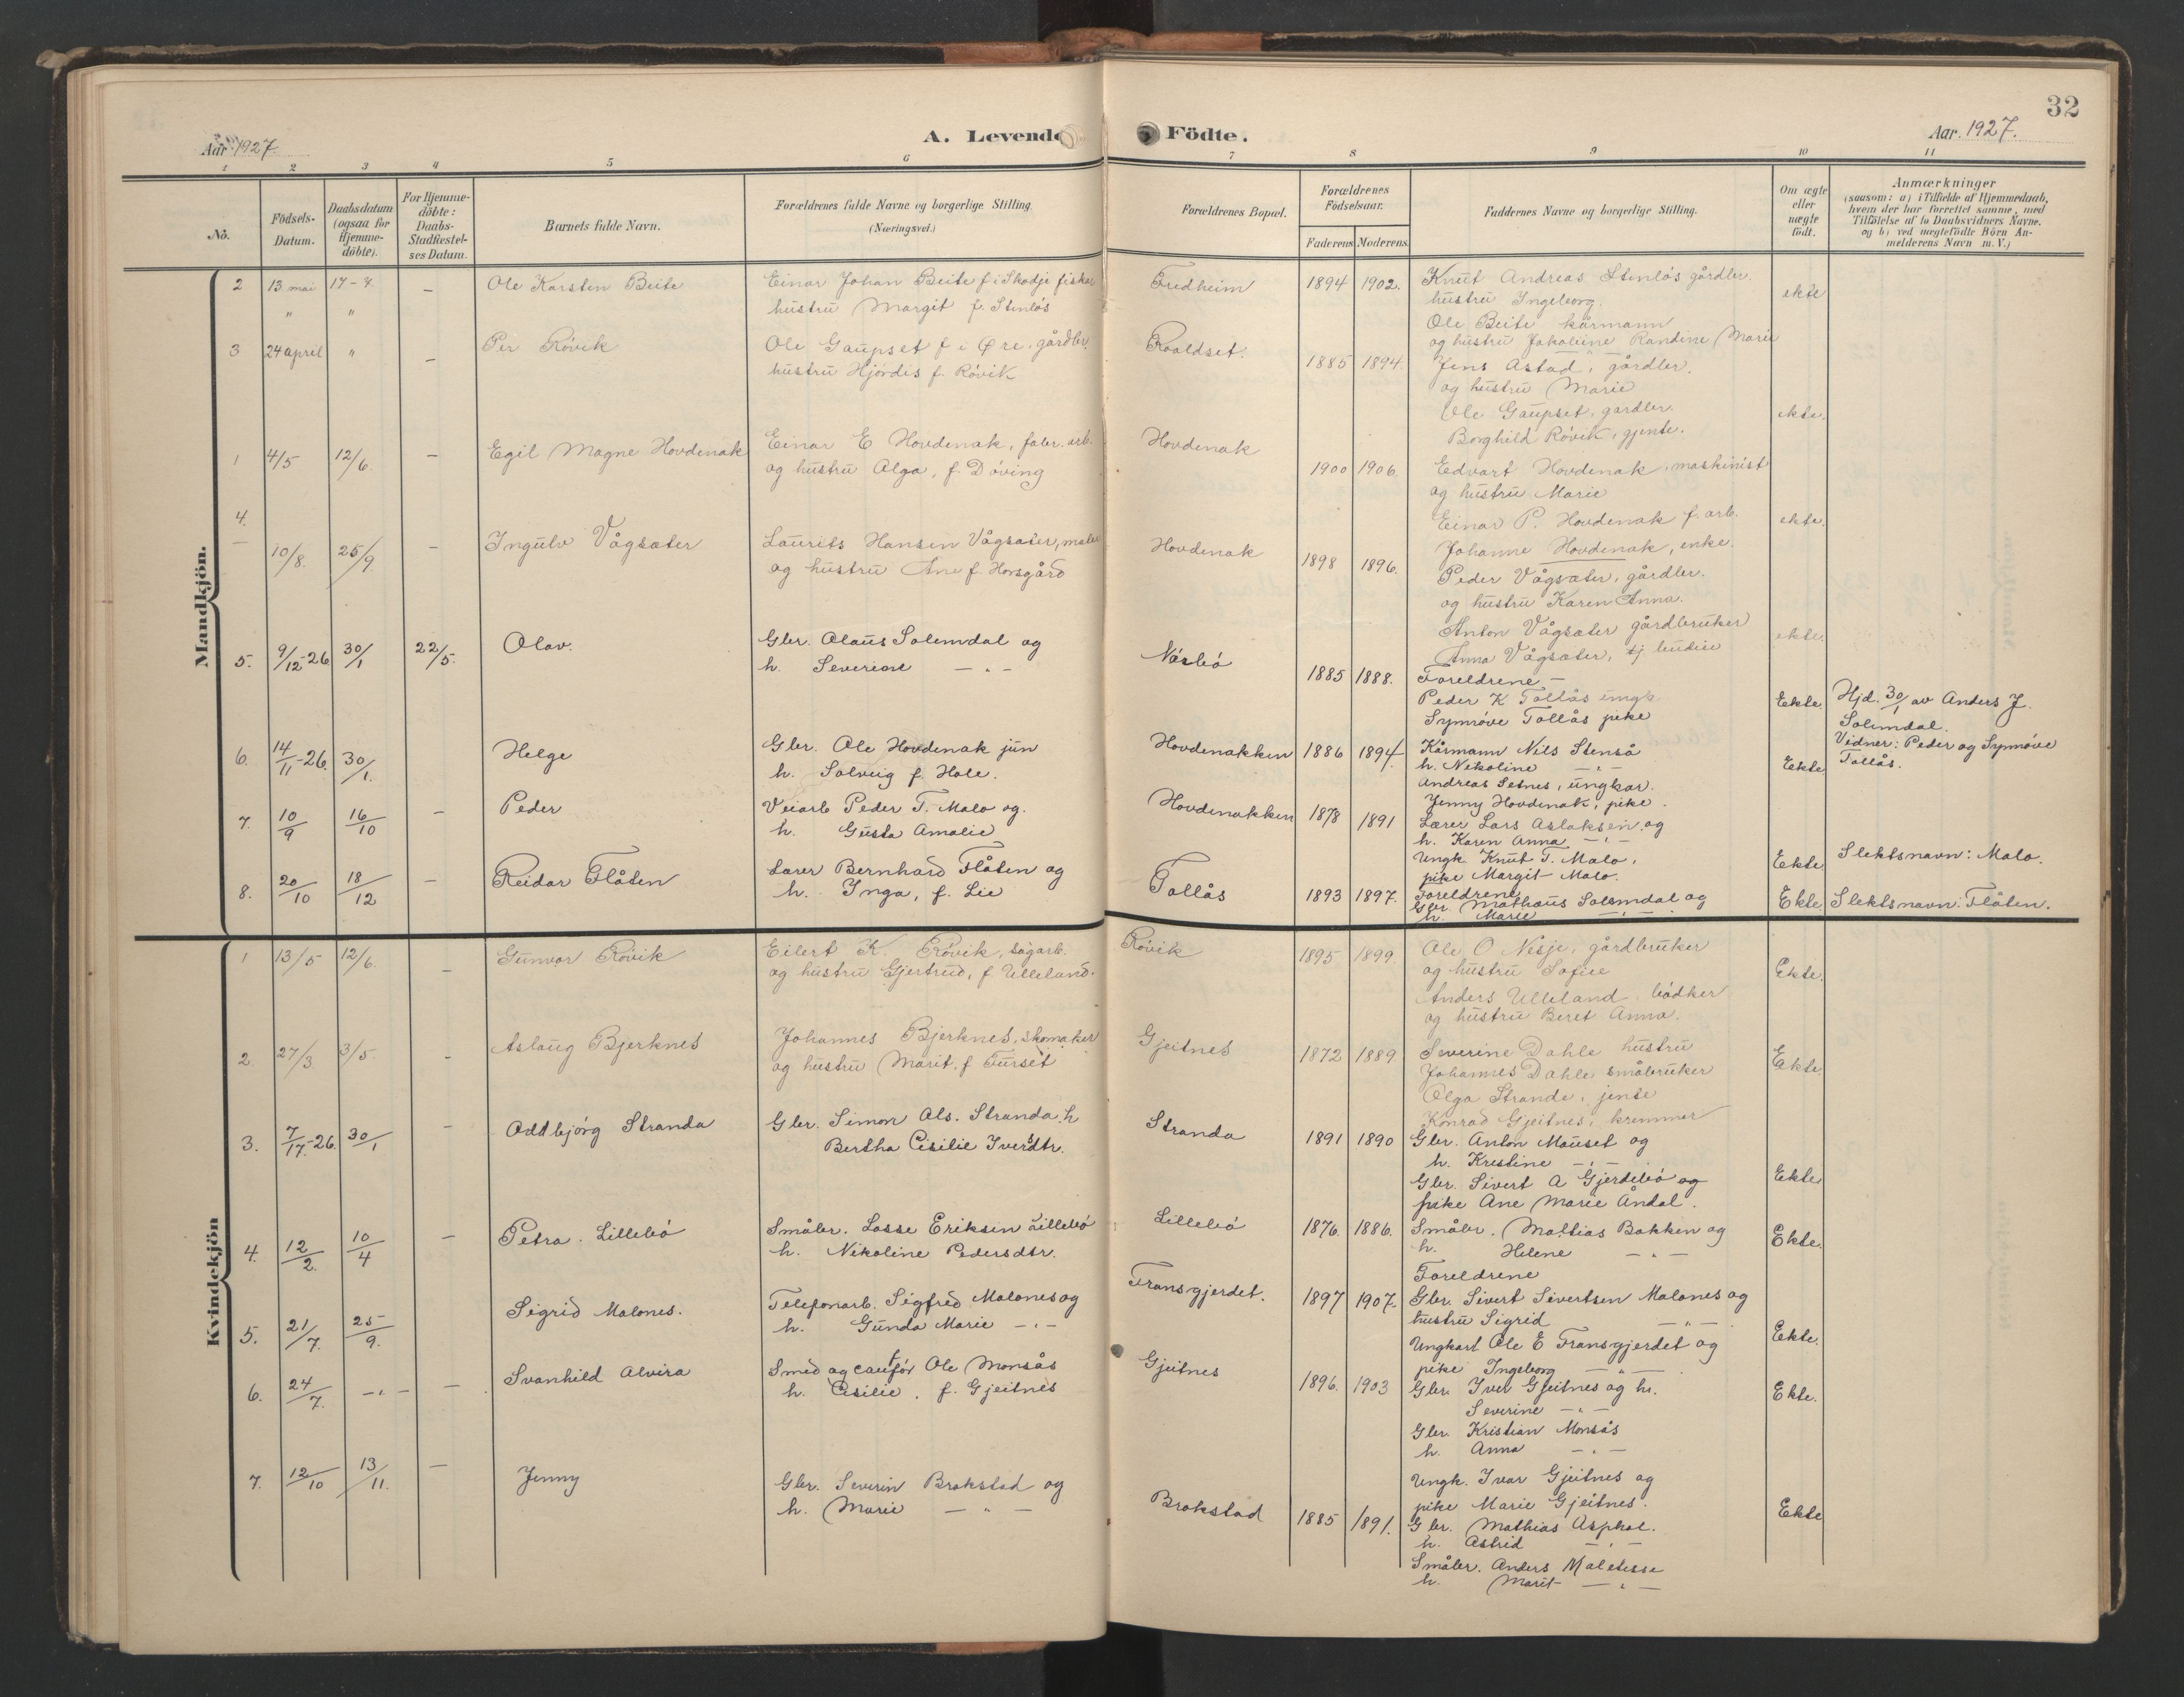 32
Aar 1927.
A. Levende Födte.
Aar. 1927.
1 2 3 4 5 6 7 8 9 10 11
No.
Födsels-Datum.
Daabsdatum (ogsaa for Hjemme-döbte).
For Hjemme-döbte: Daabs-Stadfæstel-ses Datum.
Barnets fulde Navn.
Forældrenes fulde Navne og borgerlige Stilling.
(Næringsvei.)
Forældrenes Bopæl.
Forældrenes Födselsaar.
Faderens Moderens.
Faddernes Navne og borgerlige Stilling.
Om ægte eller uægte födt.
Anmærkninger
(saasom: a) i Tilfælde af Hjemmedaab,
hvem der har forrettet samme, med
Tilföielse af to Daabsvidners Navne.
og b) ved uægtefödte Börn An-
melderens Navn m. V.)
Mandkjön.
2 13. mai 17-4. – Ole Karsten Beite
Einar Johan Beite f. i Skodje fisker
hustru Margit f. Stenløs
Fredheim 1894 1902.
Knut Andreas Stenløs gårdbr.
hustru Ingeborg.
Ole Beite kårmann
og hustru Jakobine Randine Marie
ekte
3 24 april " – Per Røvik
Ole Gaupset f i Øre. gårdbr.
hustru Hjørdis f. Røvik
Roaldset. 1885 1894.
Jens Astad, gårdbr.
og hustru Marie
Ole Gaupset, gardbr.
Borghild Røvik, gjente.
ekte.
1 4/5 12/6. – Egil Magne Hovdenak
Einar E Hovdenak, fabr. arb.
og hustru Alga, f. Døving
Hovdenak 1900 1906.
Edvart Hovdenak, maskinist
og hustru Marie
Einar P. Hovdenak f. arb.
Johanne Hovdenak, enke.
ekte.
4. 10/8. 25/9. – Ingulv Vågsæter
Laurits Hansen Vågsæter, maler
og hustru Ane f. Horsgård
Hovdenak 1898 1896.
Peder Vågsæter, gårdbr.
og hustru Karen Anna.
Anton Vågsæter gårdbruker
Anna Vågsæter, tj budeie
ekte.
5. 9/12-26 30/1 22/5. Olav.
Gbr. Olaus Solemdal og
h. Severine – " –
Næsbø 1885 1888.
Foreldrene –
Peder K Tollås ungk.
Synnøve Tollås pike
Ekte.
Hjd. 30/1 av Anders J.
Solemdal.
Vidner: Peder og Synnøve
Tollås.
6. 14/11-26. 30/1. Helge
Gbr. Ole Hovdenak jun
h. Solveig f. Hole.
Hovdenakken 1886 1894.
Kårmann Nils Stenså
h. Nikoline – " –
Andreas Setnes, ungkar.
Jenny Hovdenak, pike.
Ekte.
7. 10/9 16/10 – Peder
Veiarb Peder T. Malo og.
h. Gusta Amalie
Hovdenakken 1878 1891
Lærer Lars Aslaksen og
h. Karen Anna – " –
Ungk. Knut T. Malo.
pike Margit Malo.
Ekte
Slektsnavn: Malo.
8. 20/10 18/12 – Reidar Flåten
Lærer Bernhard Flåten og
h. Inga, f. Lie
Tollås 1893 1897.
Foreldrene
Gbr. Mathæus Solemdal og
h. Marie – " –
Ekte
Slektsnavn: Flåten.
Kvindekjön
1 13/5 12/6. – Gunvor Røvik
Eilert K. Røvik, sagarb.
og hustru Gjertrud, f Ulleland.
Røvik 1895 1899.
Ole O Nesje, gårdbruker
og hustru Sofie
Anders Ulleland, bødker
og hustru Beret Anna.
Ekte.
2 27/3. 3/5. – Aslaug Bjerknes
Johannes Bjerknes, skomaker
og hustru Marit. f Furset
Gjeitnes 1872 1889
Severine Dahle hustru
Johannes Dahle småbruker
Olga Strande, jente
Konrad Gjeitnes, kremmer
Ekte.
3. 7/17.-26 30/1 – Oddbjørg Stranda
Gbr. Simon Als. Stranda h
Bertha Cisilie Iversdtr.
Stranda 1891 1890
Gbr. Anton Mauset og
h. Kristine – " –
Gbr. Sivert A Gjerdebø og
pike Ane Marie Åndal.
Ekte
4. 12/2. 10/4 – Petra. Lillebø
Småbr. Lasse Eriksen Lillebø
h. Nikoline Pedersdtr.
Lillebø 1876. 1886.
Småbr. Mattias Bakken og
h. Helene – " –
Foreldrene
Ekte.
5. 21/7. 25/9. Sigrid Malones.
Telefonarb. Sigfred Malones og
h. Gunda Marie – " –
Fransgjerdet. 1897 1907.
Gbr. Sivert Sivertsen Malones og
hustru Sigrid – " –
Ungkarl Ole E Fransgjerdet og
pike Ingeborg – " –
Ekte.
6. 24/7. – " – – Svanhild Alvira
Smed og Ole Monsås
h. Cisilie. f. Gjeitnes
Gjeitnes 1896. 1903
Gbr. Iver Gjeitnes og h.
Severine – " –
Gbr. Kristian Monsås
h. Anna – " –
Ekte.
7. 12/10 13/11. – Jenny
Gbr. Severin Brokstad og
h. Marie – " –
Brokstad 1885 1891.
Ungk. Ivar Gjeitnes og
pike Marie Gjeitnes.
Gbr. Mathias Asphol.
h. Astrid – " –
Småbr. Anders
h. Marit – " –
Ekte